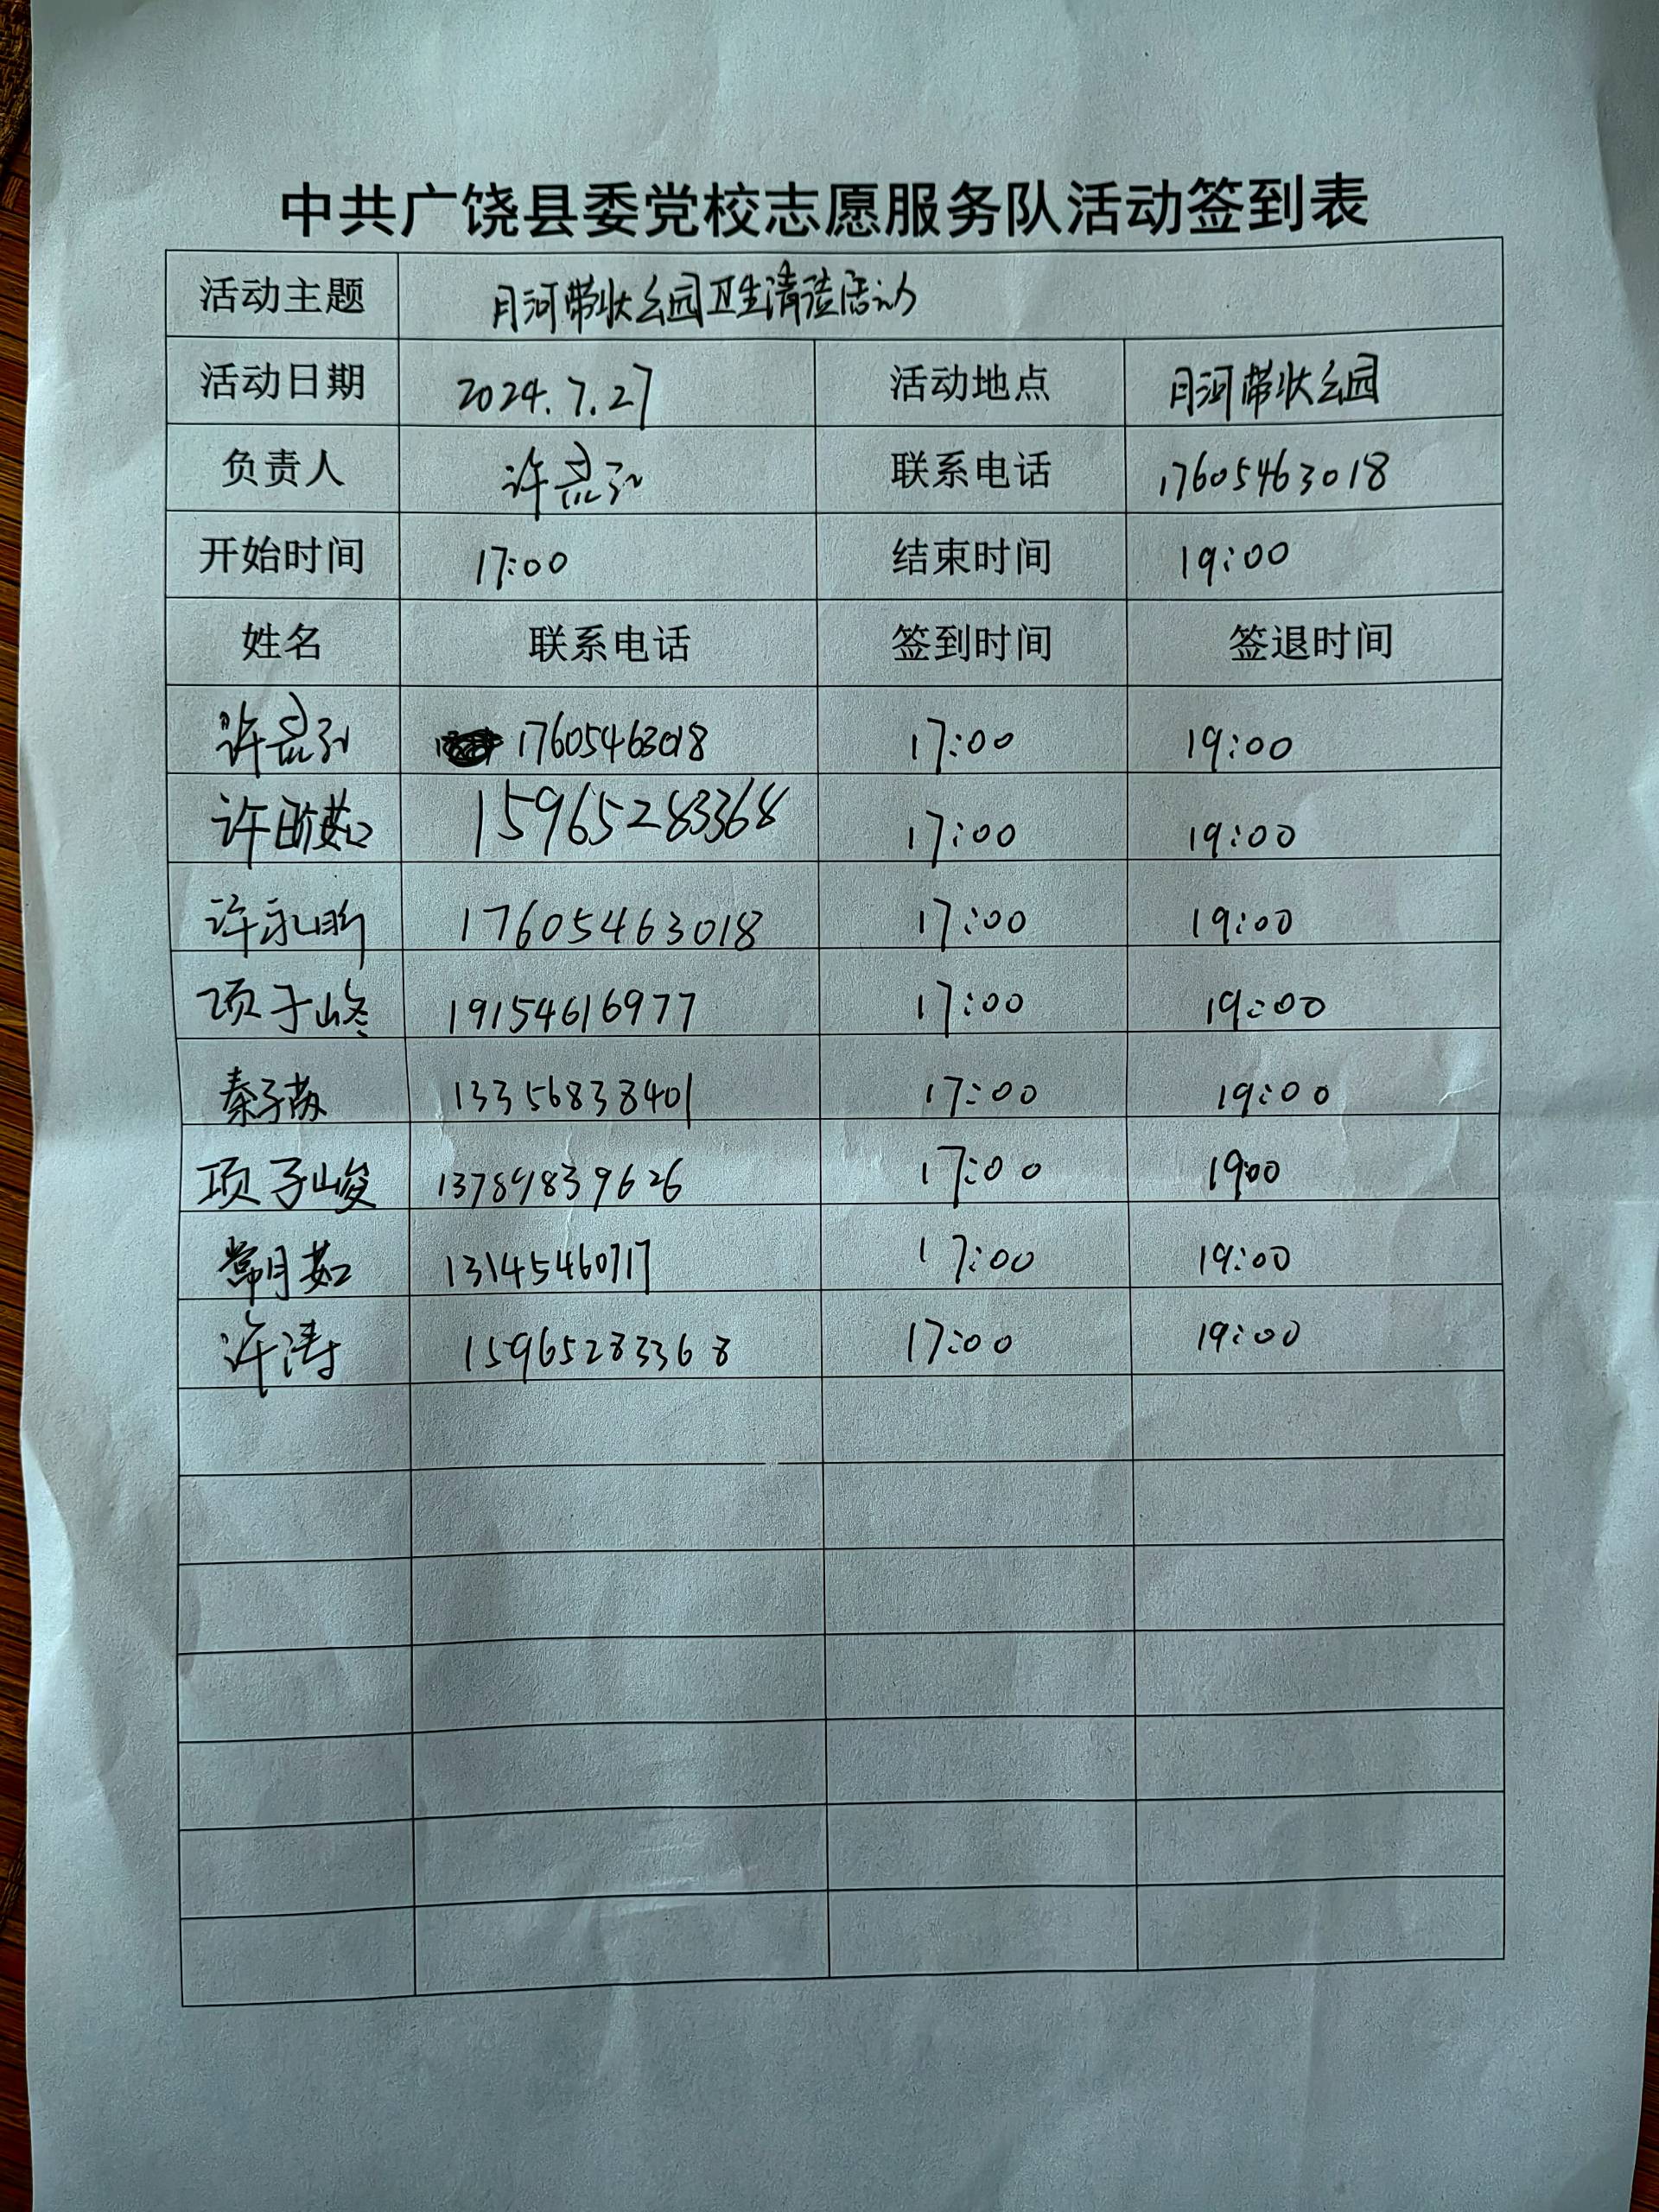 中共广饶县委党校志愿服务队活动签到表
活动主题 月河带状公园卫生清洁活动
活动日期 2024.7.27 活动地点 月河带状公园
负责人 许 联系电话 17605463018
开始时间 17:00 结束时间 19:00
姓名 联系电话 签到时间 签退时间
许 17605463018 17:00 19:00
许 茹 15965283368 17:00 19:00
许永昕 17605463018 17:00 19:00
项子峰 19154616977 17:00 19:00
秦子 13356838401 17:00 19:00
项子峻 13789839626 17:00 19:00
常月茹 13145460717 17:00 19:00
许涛 15965283368 17:00 19:00